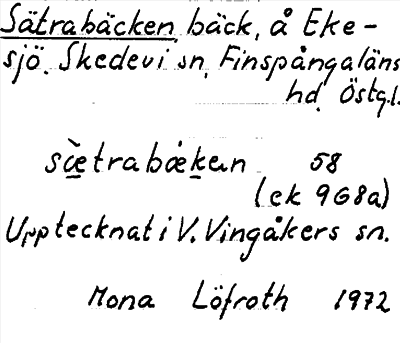 Sätrabäcken, bäck, å Eke-
sjö. Skedevi sn, Finspångaläns
hd, Östg.l.
sæ̀trabækan 58
(ek 9G8a)
Upptecknat i V. Vingåkers sn.
Mona Löfroth 1972